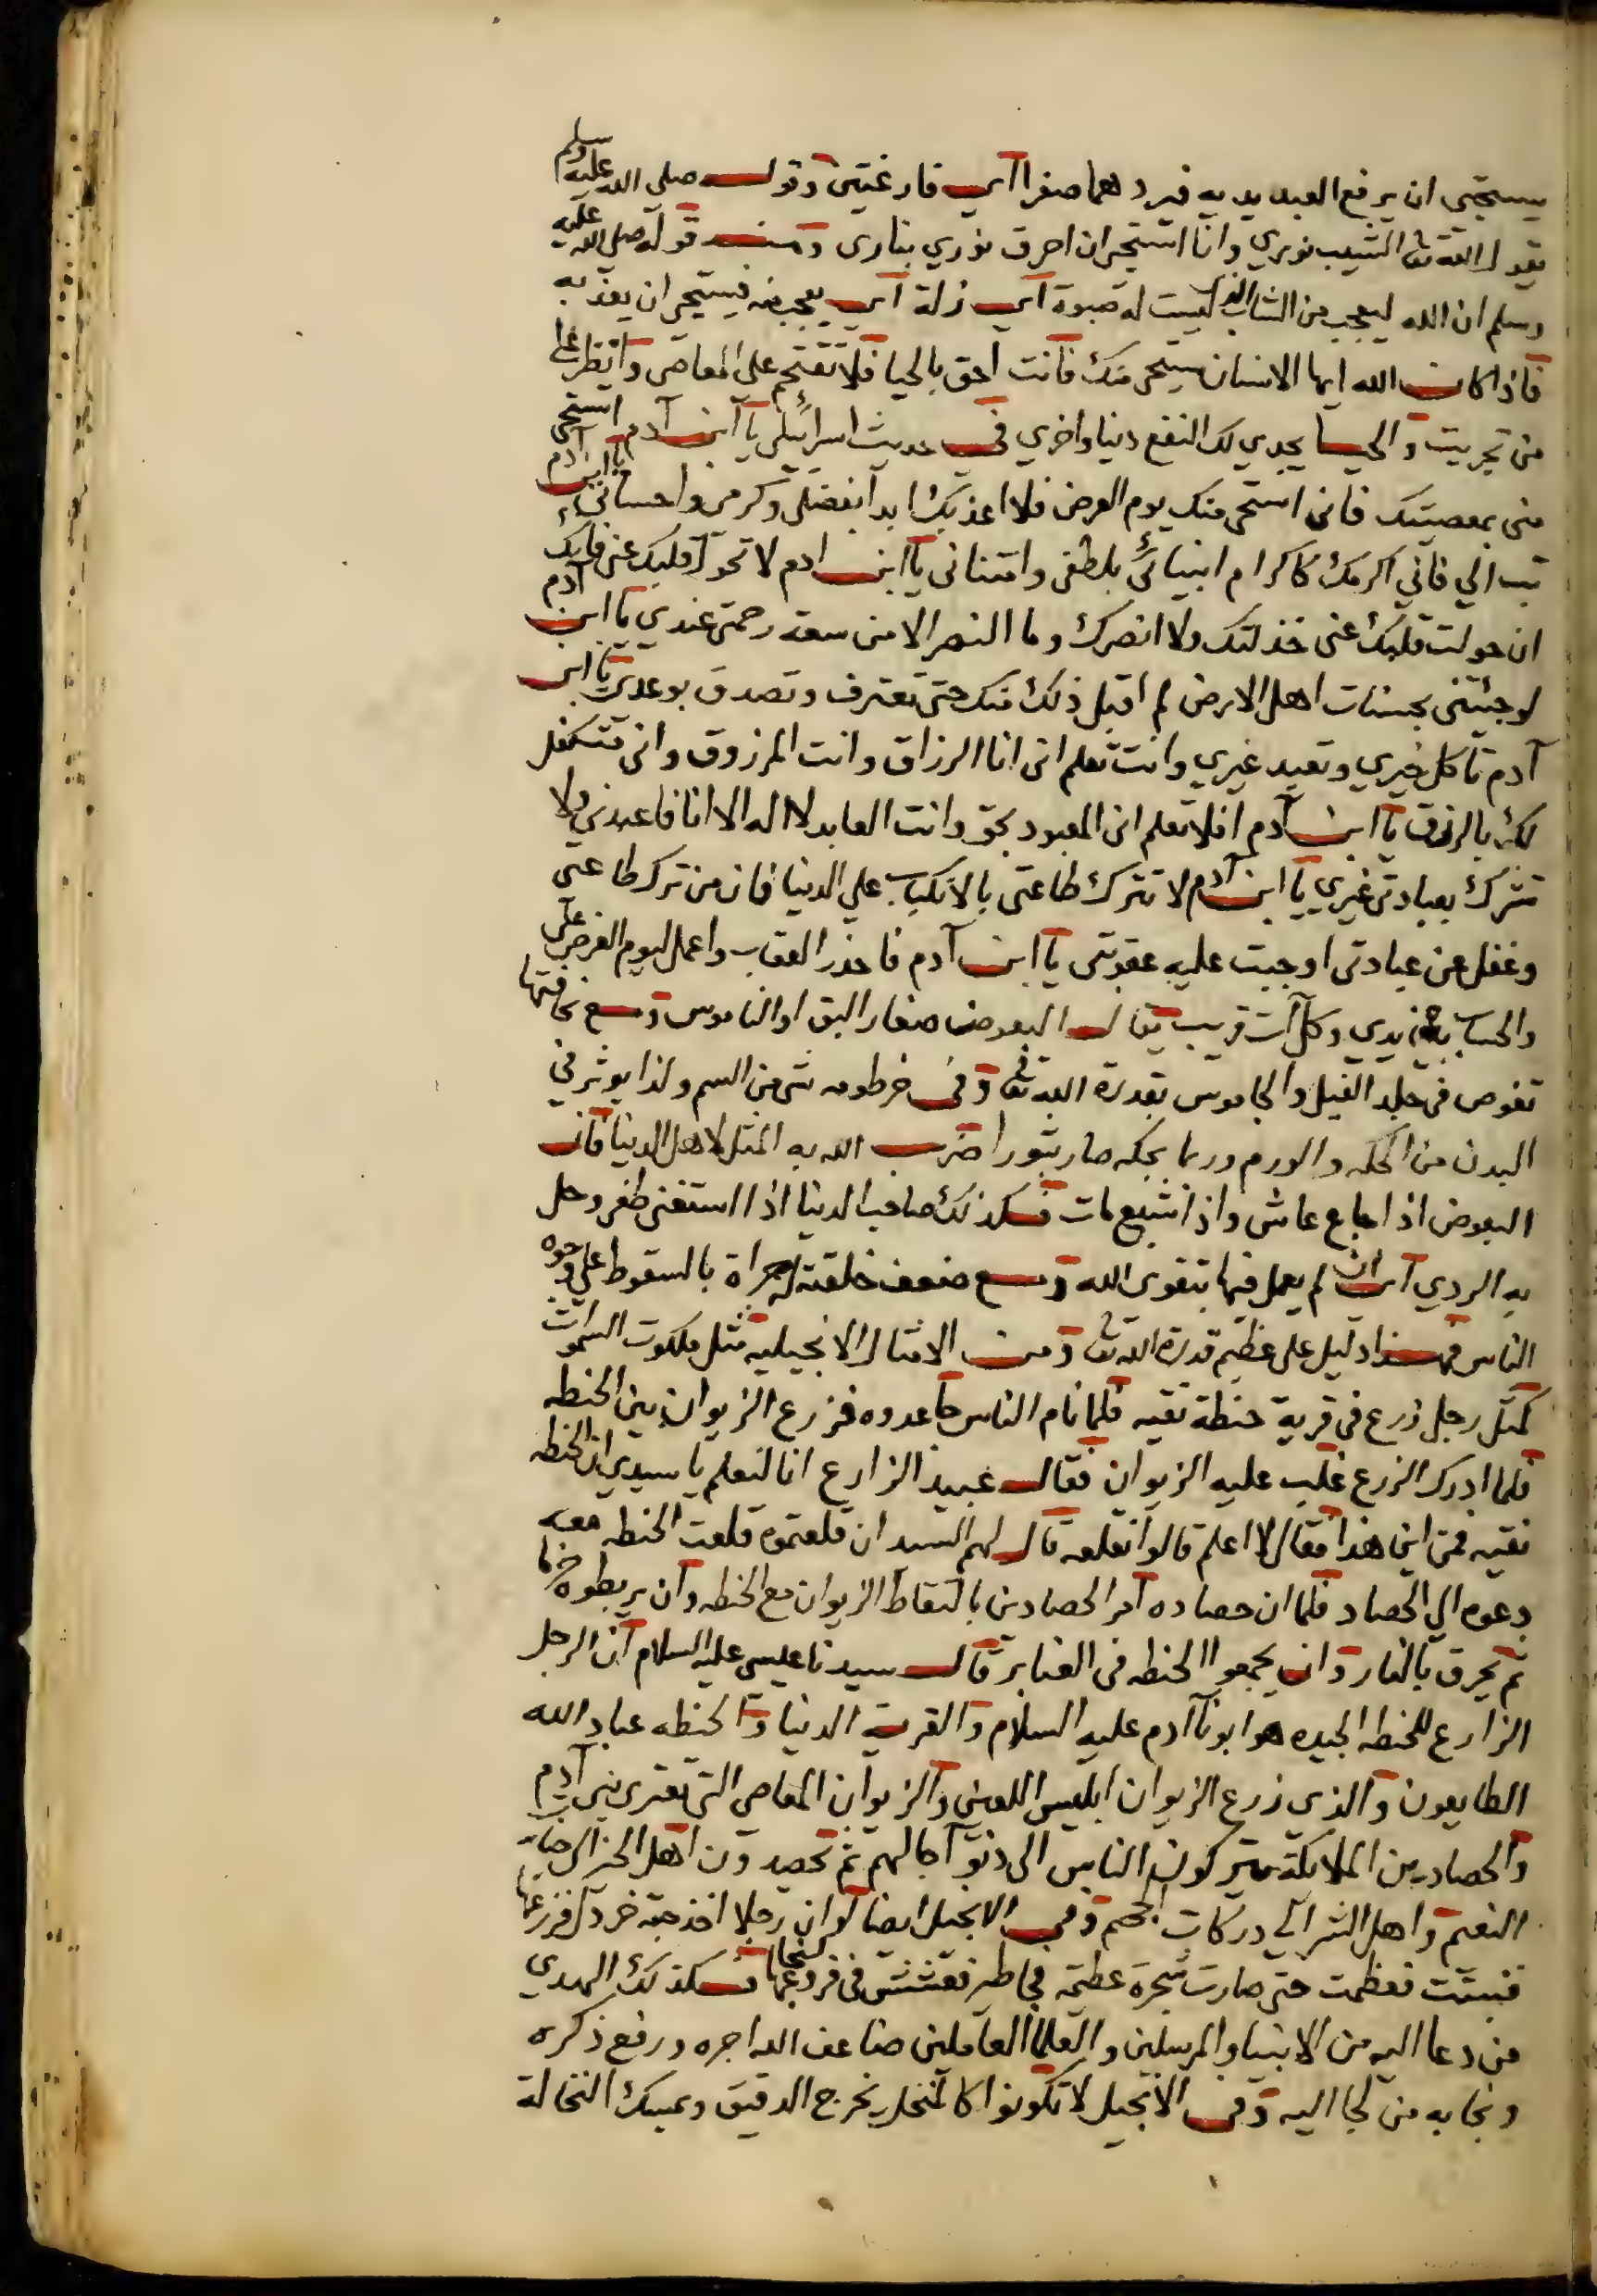 يستحيي ان يرفع العبد يديه فيردهما صفرا اي فارغتين وقوله صلى الله عليه وسلم
يقول الله تعا الشيب نوري وانا استحي ان احرق نوري بناري ومنه قوله صلى الله عليه
وسلم ان الله ليعجب من الشاب الذي ليست له صبوة اي زلة اي يعجب منه فيستحي ان يعذبه
فاذا كان الله ايها الانسان يستحى منك فانت احق بالحيا فلا تقتحم على المعاصى وانتظر على
من تجريت والحيا يجدي لك النفع دنيا واخري في حديث اسرائيلي يا ابن آدم استحى
منى بمعصيتك فانى استحى منك يوم العرض فلا اعذبك ابدا بفضلى وكرمى واحسانى يا ابن آدم
تب الي فاني اكرمك كاكرام انبيائي بلطفى وامتنانى يا ابن ادم لا تحول قلبك عنى فانك
ان حولت قلبك عنى خذلتك ولا انصرك وما النصر الا من سعة رحمتى عندي يا ابن آدم
لو جئتنى بحسنات اهل الارض لم اقبل ذلك منك حتى تعترف وتصدق بوعدي يا ابن
آدم تاكل خيري وتعبد غيري وانت تعلم انى انا الرزاق وانت المرزوق وانى متكفل
لك بالرزق يا ابن آدم افلا تعلم انى المعبود بحق وانت العابد لا اله الا انا فاعبدني ولا
تشرك بعبادتى غيري يا ابن آدم لا تترك طاعتى بالانكباب علي الدنيا فان من ترك طاعتى
وغفل عن عبادتى اوجبت عليه عقوبتى يا ابن آدم فاحذر العقاب واعمل ليوم العرض على
والحساب بين يدي وكل آت قريب يقال البعوض صغار البق او الناموس ومع نحافتها
تغوص في جلد الفيل والجاموس بقدرة الله تعا وفى خرطومه شى من السم ولذا يوثر في
البدن من الحكه والورم وربما بحكه صار بثورا ضرب الله به المثل لاهل الدنيا فان
البعوض اذا جاع عاش واذا شبع مات فكذلك صاحب الدنيا اذا استغنى طغى وحل
به الردي اي ان لم يعمل فيها بتقوى الله ومع ضعف خلقته له جراة بالسقوط علي وجوه
الناس فهذا دليل على عظيم قدرة الله تعا ومن الامثال الانجيليه مثل ملكوت السموات
كمثل رجل زرع فى قرية حنطة نقيه فلما نام الناس جا عدوه فزرع الزيوان بين الحنطه
فلما ادرك الزرع غلب عليه الزيوان فقال عبيد الزارع انا لنعلم يا سيدي ان الحنطه
نقيه فمن اين هذا فقال لا اعلم قالوا نقلعه قال لهم السيد ان قلعتموه قلعت الحنطه معه
دعوه الي الحصاد فلما ان حصاده امر الحصادين بالتقاط الزيوان مع الحنطه وان يربطوه حزما
ثم يحرق بالنار وان يجمعوا الحنطه فى العنابر قال سيدنا عيسى عليه السلام ان الرجل
الزارع للحنطه الجيده هو ابونا آدم عليه السلام والقرية الدنيا والحنطه عباد الله
الطايعون والذي زرع الزيوان ابليس اللعين والزيوان المعاصى التى تعترى بنى آدم
والحصادين الملايكة يتركون الناس الى دنو آجالهم ثم تحصدون اهل الخير الى جنات
النعيم واهل الشر الي دركات الجحيم وفى الانجيل ايضا لو ان رجلا اخذ حبة خردل فزرعها
فنبتت فعظمت حتى صارت شجرة عظيمه فجا طير فعشش فى فروعها فكذلك الهدي
من دعا اليه من الانبيا والمرسلين والعلما العاملين ضاعف الله اجره ورفع ذكره
ونجا به من لجا اليه وفى الانجيل لا تكونوا كالمنخل يخرج الدقيق ويمسك النخالة